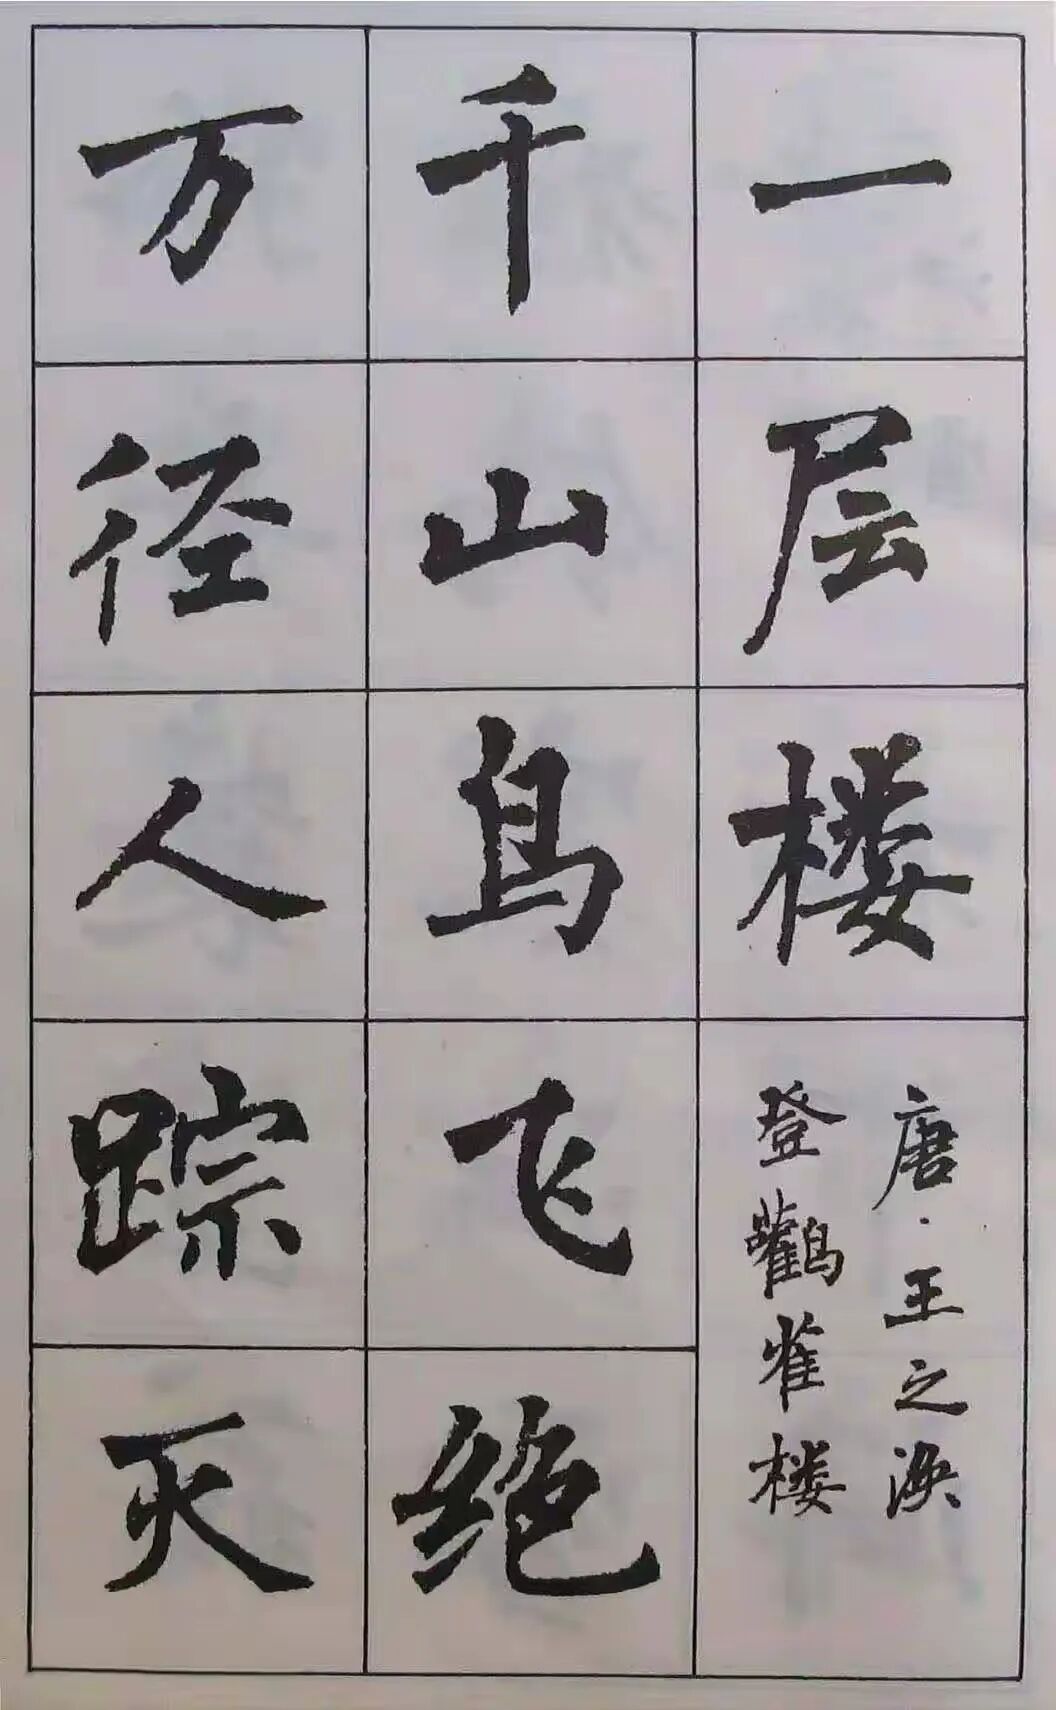 一层楼
唐·王之涣
登鸛雀楼
千山鸟飞绝
万径人踪灭